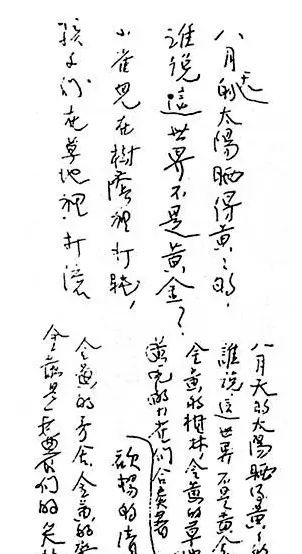 八月天的太陽晒得黃黃的，
誰說這世界不是黃金？
小雀兒在樹蔭裡打盹，
孩子們在草地裡打滾。
八月天的太陽晒得黃黃的
誰說這世界不是黃金
金黃的樹林，金黃的草地
小雀們合奏著
歡暢的清
金黃的茅舍，金黃的
金黃是